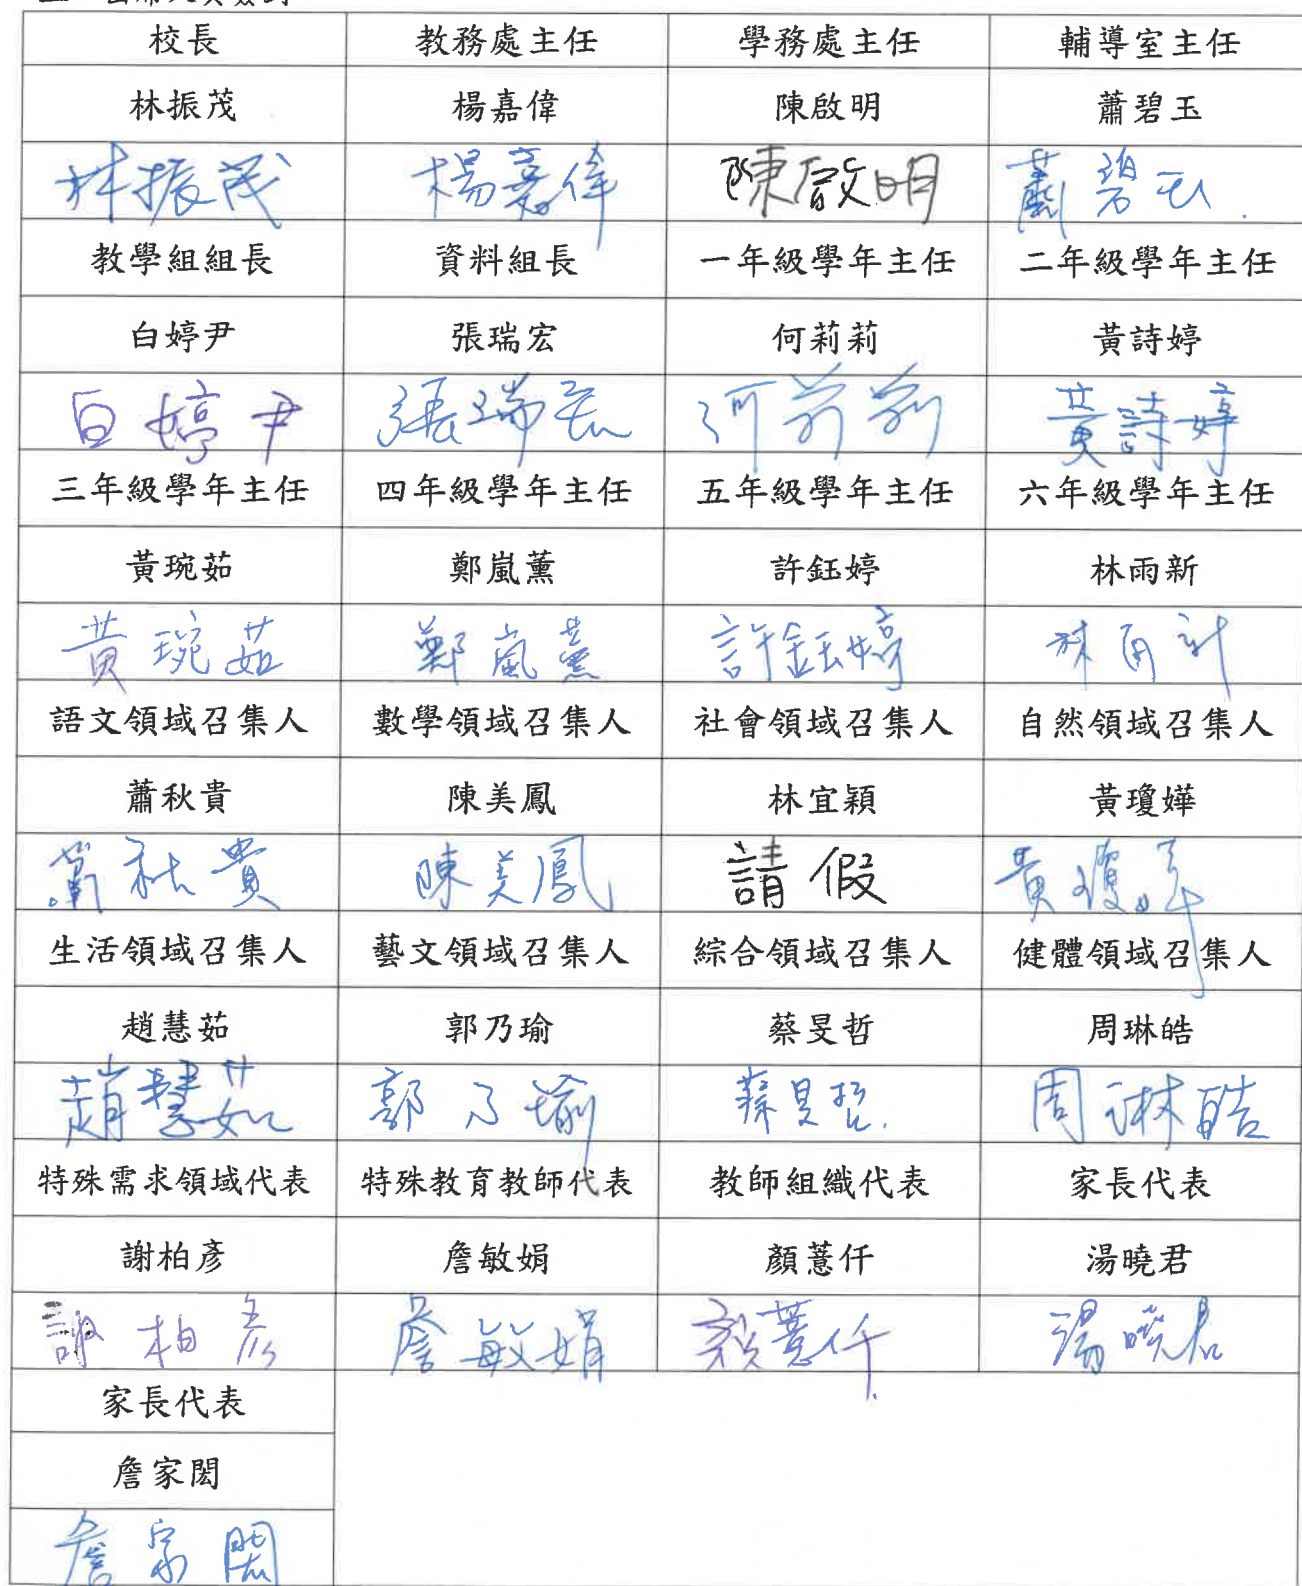 校長 教務處主任 學務處主任 輔導室主任
林振茂 楊嘉偉 陳啟明 蕭碧玉
林振茂 楊嘉偉 陳啟明 蕭碧玉
教學組組長 資料組長 一年級學年主任 二年級學年主任
白婷尹 張瑞宏 何莉莉 黃詩婷
白婷尹 張瑞宏 何莉莉 黃詩婷
三年級學年主任 四年級學年主任 五年級學年主任 六年級學年主任
黃琬茹 鄭嵐薰 許鈺婷 林雨新
黃琬茹 鄭嵐薰 許鈺婷 林雨新
語文領域召集人 數學領域召集人 社會領域召集人 自然領域召集人
蕭秋貴 陳美鳳 林宜穎 黃瓊嬅
蕭秋貴 陳美鳳 請假 黃瓊嬅
生活領域召集人 藝文領域召集人 綜合領域召集人 健體領域召集人
趙慧茹 郭乃瑜 蔡旻哲 周琳皓
趙慧茹 郭乃瑜 蔡旻哲 周琳皓
特殊需求領域代表 特殊教育教師代表 教師組織代表 家長代表
謝柏彥 詹敏娟 顏薏仟 湯曉君
謝柏彥 詹敏娟 顏薏仟 湯曉君
家長代表
詹家閎
詹家閎